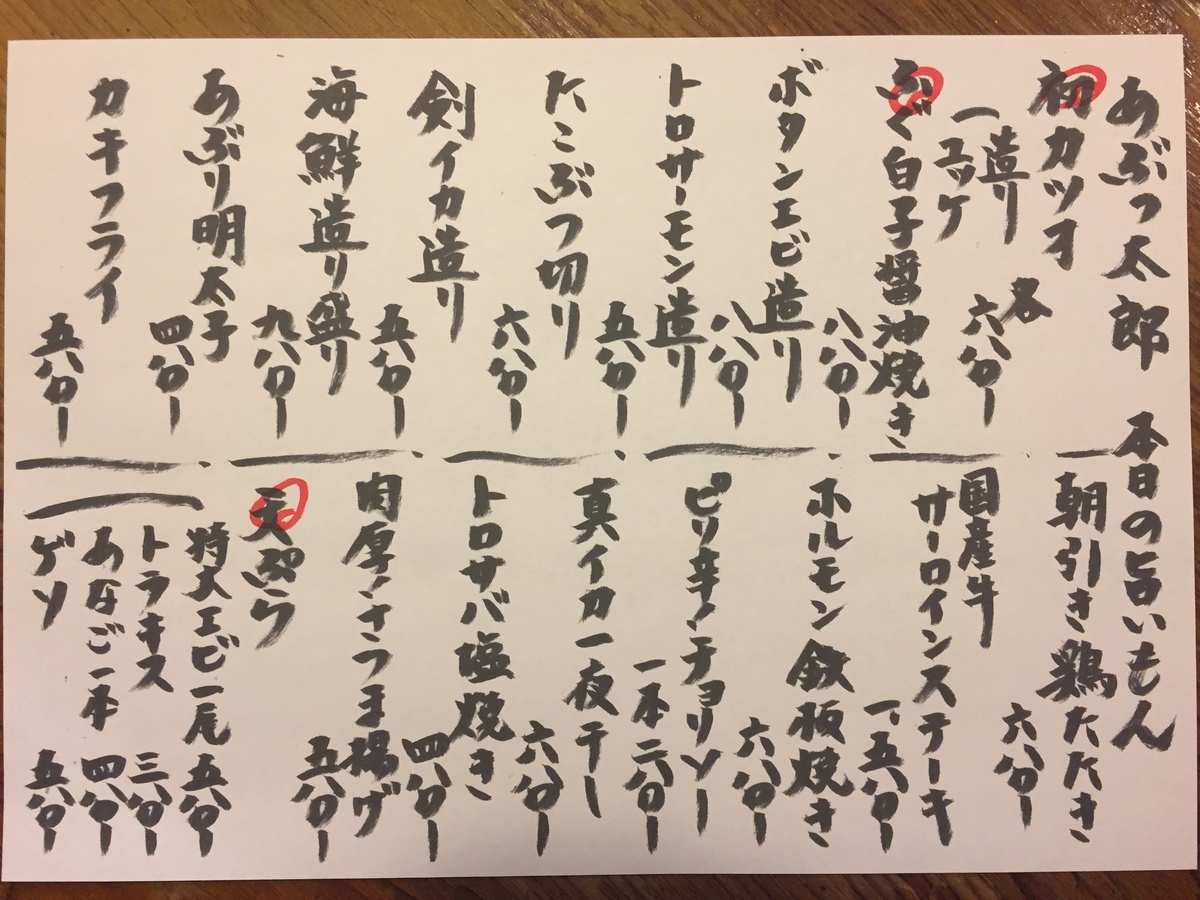 あぶっ太郎　本日の旨いもん
初カツオ
造り
ユッケ
各
六八〇ー
ふぐ白子醤油焼き
八八〇ー
ボタンエビ造り
八八〇ー
トロサーモン造り
五八〇ー
たこぶつ切り
六八〇ー
剣イカ造り
五八〇ー
海鮮造り盛り
九八〇ー
あぶり明太子
四八〇ー
カキフライ
五八〇ー
朝引き鶏たたき
六八〇ー
国産牛
サーロインステーキ
一、五八〇ー
ホルモン鉄板焼き
六八〇ー
ピリ辛チョリソー
一本二八〇ー
真イカ一夜干し
六八〇ー
トロサバ塩焼き
四八〇ー
肉厚さつま揚げ
五八〇ー
天ぷら
特大エビ一尾 五八〇ー
トラキス 三八〇ー
あなご一本 四八〇ー
ゲソ 五八〇ー